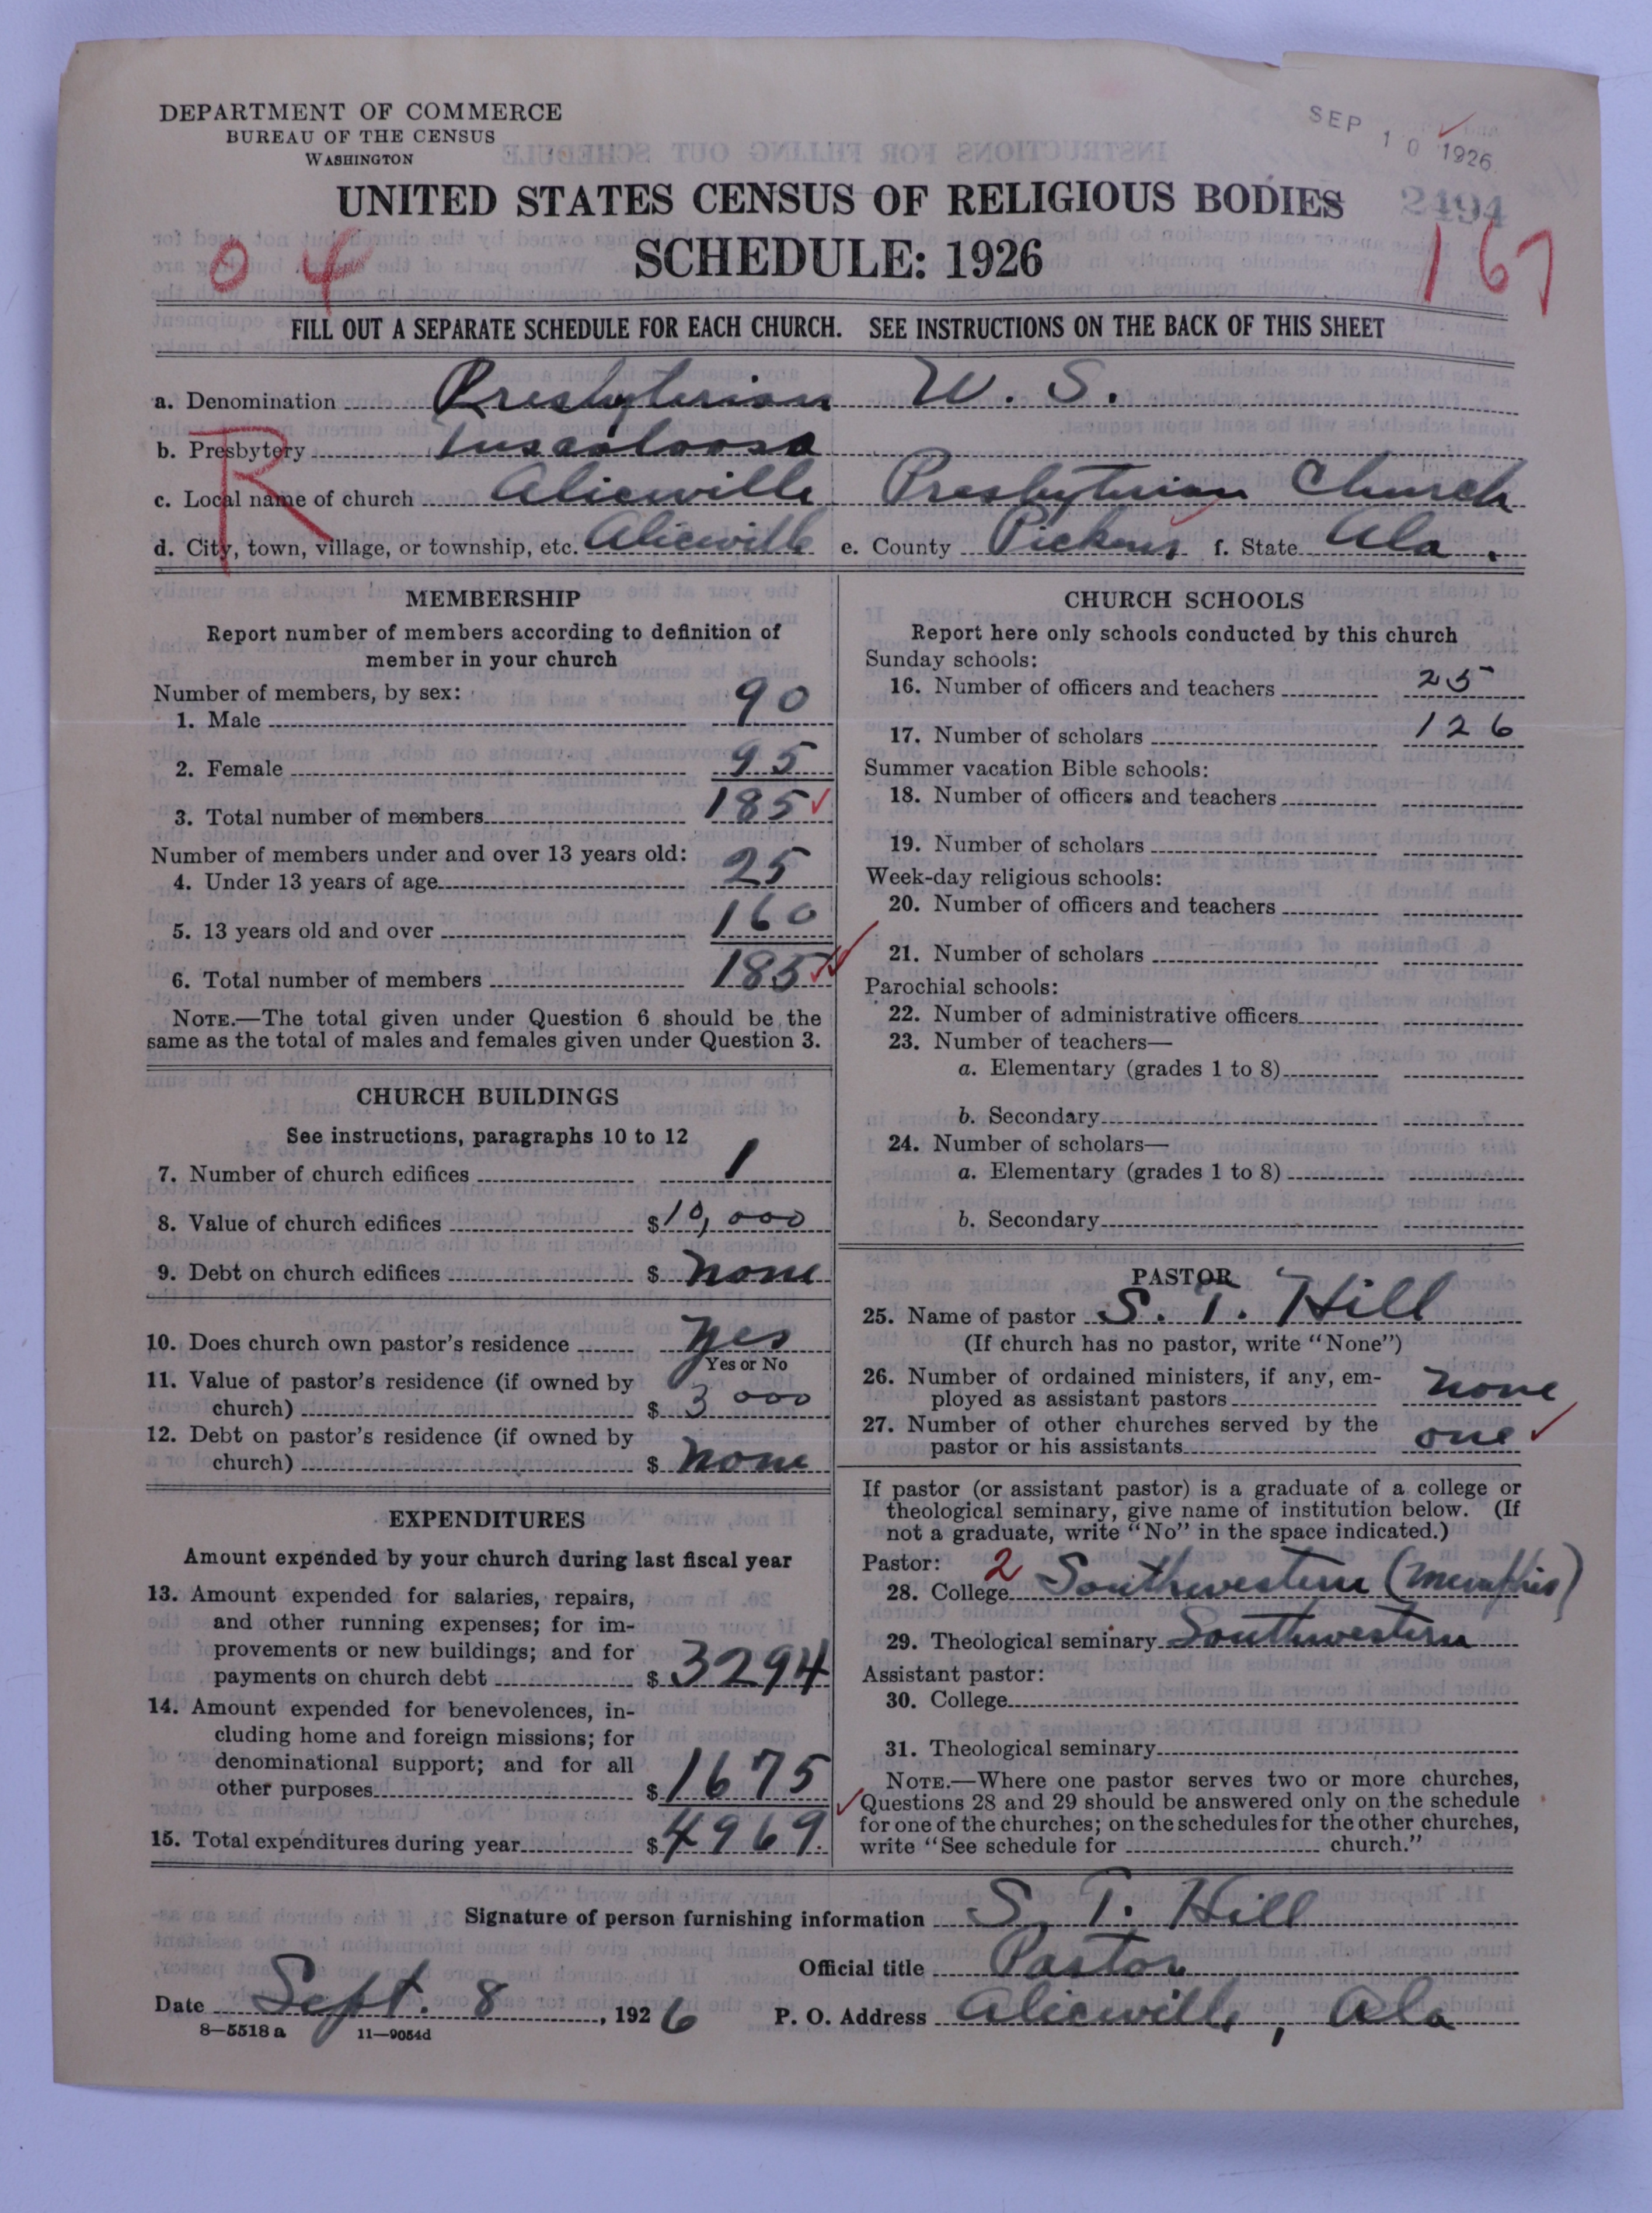 DEPARTMENT OF COMMERCE
BUREAU OF THE CENSUS
WASHINGTON
SEP 10 1926
UNITED STATES CENSUS OF RELIGIOUS BODIES
2494
SCHEDULE: 1926
04
167
FILL OUT A SEPARATE SCHEDULE FOR EACH CHURCH. SEE INSTRUCTIONS ON THE BACK OF THIS SHEET
a. Denomination Presbyterian U. S.
b. Presbytery Tuscaloosa
R
c. Local name of church Aliceville Presbyterian Church
d. City, town, village, or township, etc. Aliceville e. County Pickens f. State Ala.
MEMBERSHIP
Report number of members according to definition of
member in your church
Number of members, by sex:
1. Male 90
2. Female 95
3. Total number of members 185
Number of members under and over 13 years old:
4. Under 13 years of age 25
5. 13 years old and over 160
6. Total number of members 185
NOTE.—The total given under Question 6 should be the
same as the total of males and females given under Question 3.
CHURCH BUILDINGS
See instructions, paragraphs 10 to 12
7. Number of church edifices 1
8. Value of church edifices $10,000
9. Debt on church edifices $ none
10. Does church own pastor's residence yes
Yes or No
11. Value of pastor's residence (if owned by
church) $ 3 000
12. Debt on pastor's residence (if owned by
church) $ none
EXPENDITURES
Amount expended by your church during last fiscal year
13. Amount expended for salaries, repairs,
and other running expenses; for im-
provements or new buildings; and for
payments on church debt $ 3294
14. Amount expended for benevolences, in-
cluding home and foreign missions; for
denominational support; and for all
other purposes $ 1675
15. Total expenditures during year $ 4969.
CHURCH SCHOOLS
Report here only schools conducted by this church
Sunday schools:
16. Number of officers and teachers 25
17. Number of scholars 126
Summer vacation Bible schools:
18. Number of officers and teachers
19. Number of scholars
Week-day religious schools:
20. Number of officers and teachers
21. Number of scholars
Parochial schools:
22. Number of administrative officers
23. Number of teachers—
a. Elementary (grades 1 to 8)
b. Secondary
24. Number of scholars—
a. Elementary (grades 1 to 8)
b. Secondary
PASTOR
25. Name of pastor S. T. Hill
(If church has no pastor, write "None")
26. Number of ordained ministers, if any, em-
ployed as assistant pastors none
27. Number of other churches served by the
pastor or his assistants one
If pastor (or assistant pastor) is a graduate of a college or
theological seminary, give name of institution below. (If
not a graduate, write "No" in the space indicated.)
Pastor: 2
28. College Southwestern (Memphis)
29. Theological seminary Southwestern
Assistant pastor:
30. College
31. Theological seminary
NOTE.—Where one pastor serves two or more churches,
Questions 28 and 29 should be answered only on the schedule
for one of the churches; on the schedules for the other churches,
write "See schedule for church."
Signature of person furnishing information S. T. Hill
Official title Pastor
Date Sept. 8, 1926 P. O. Address Aliceville, Ala
8—5518 a 11—9054d